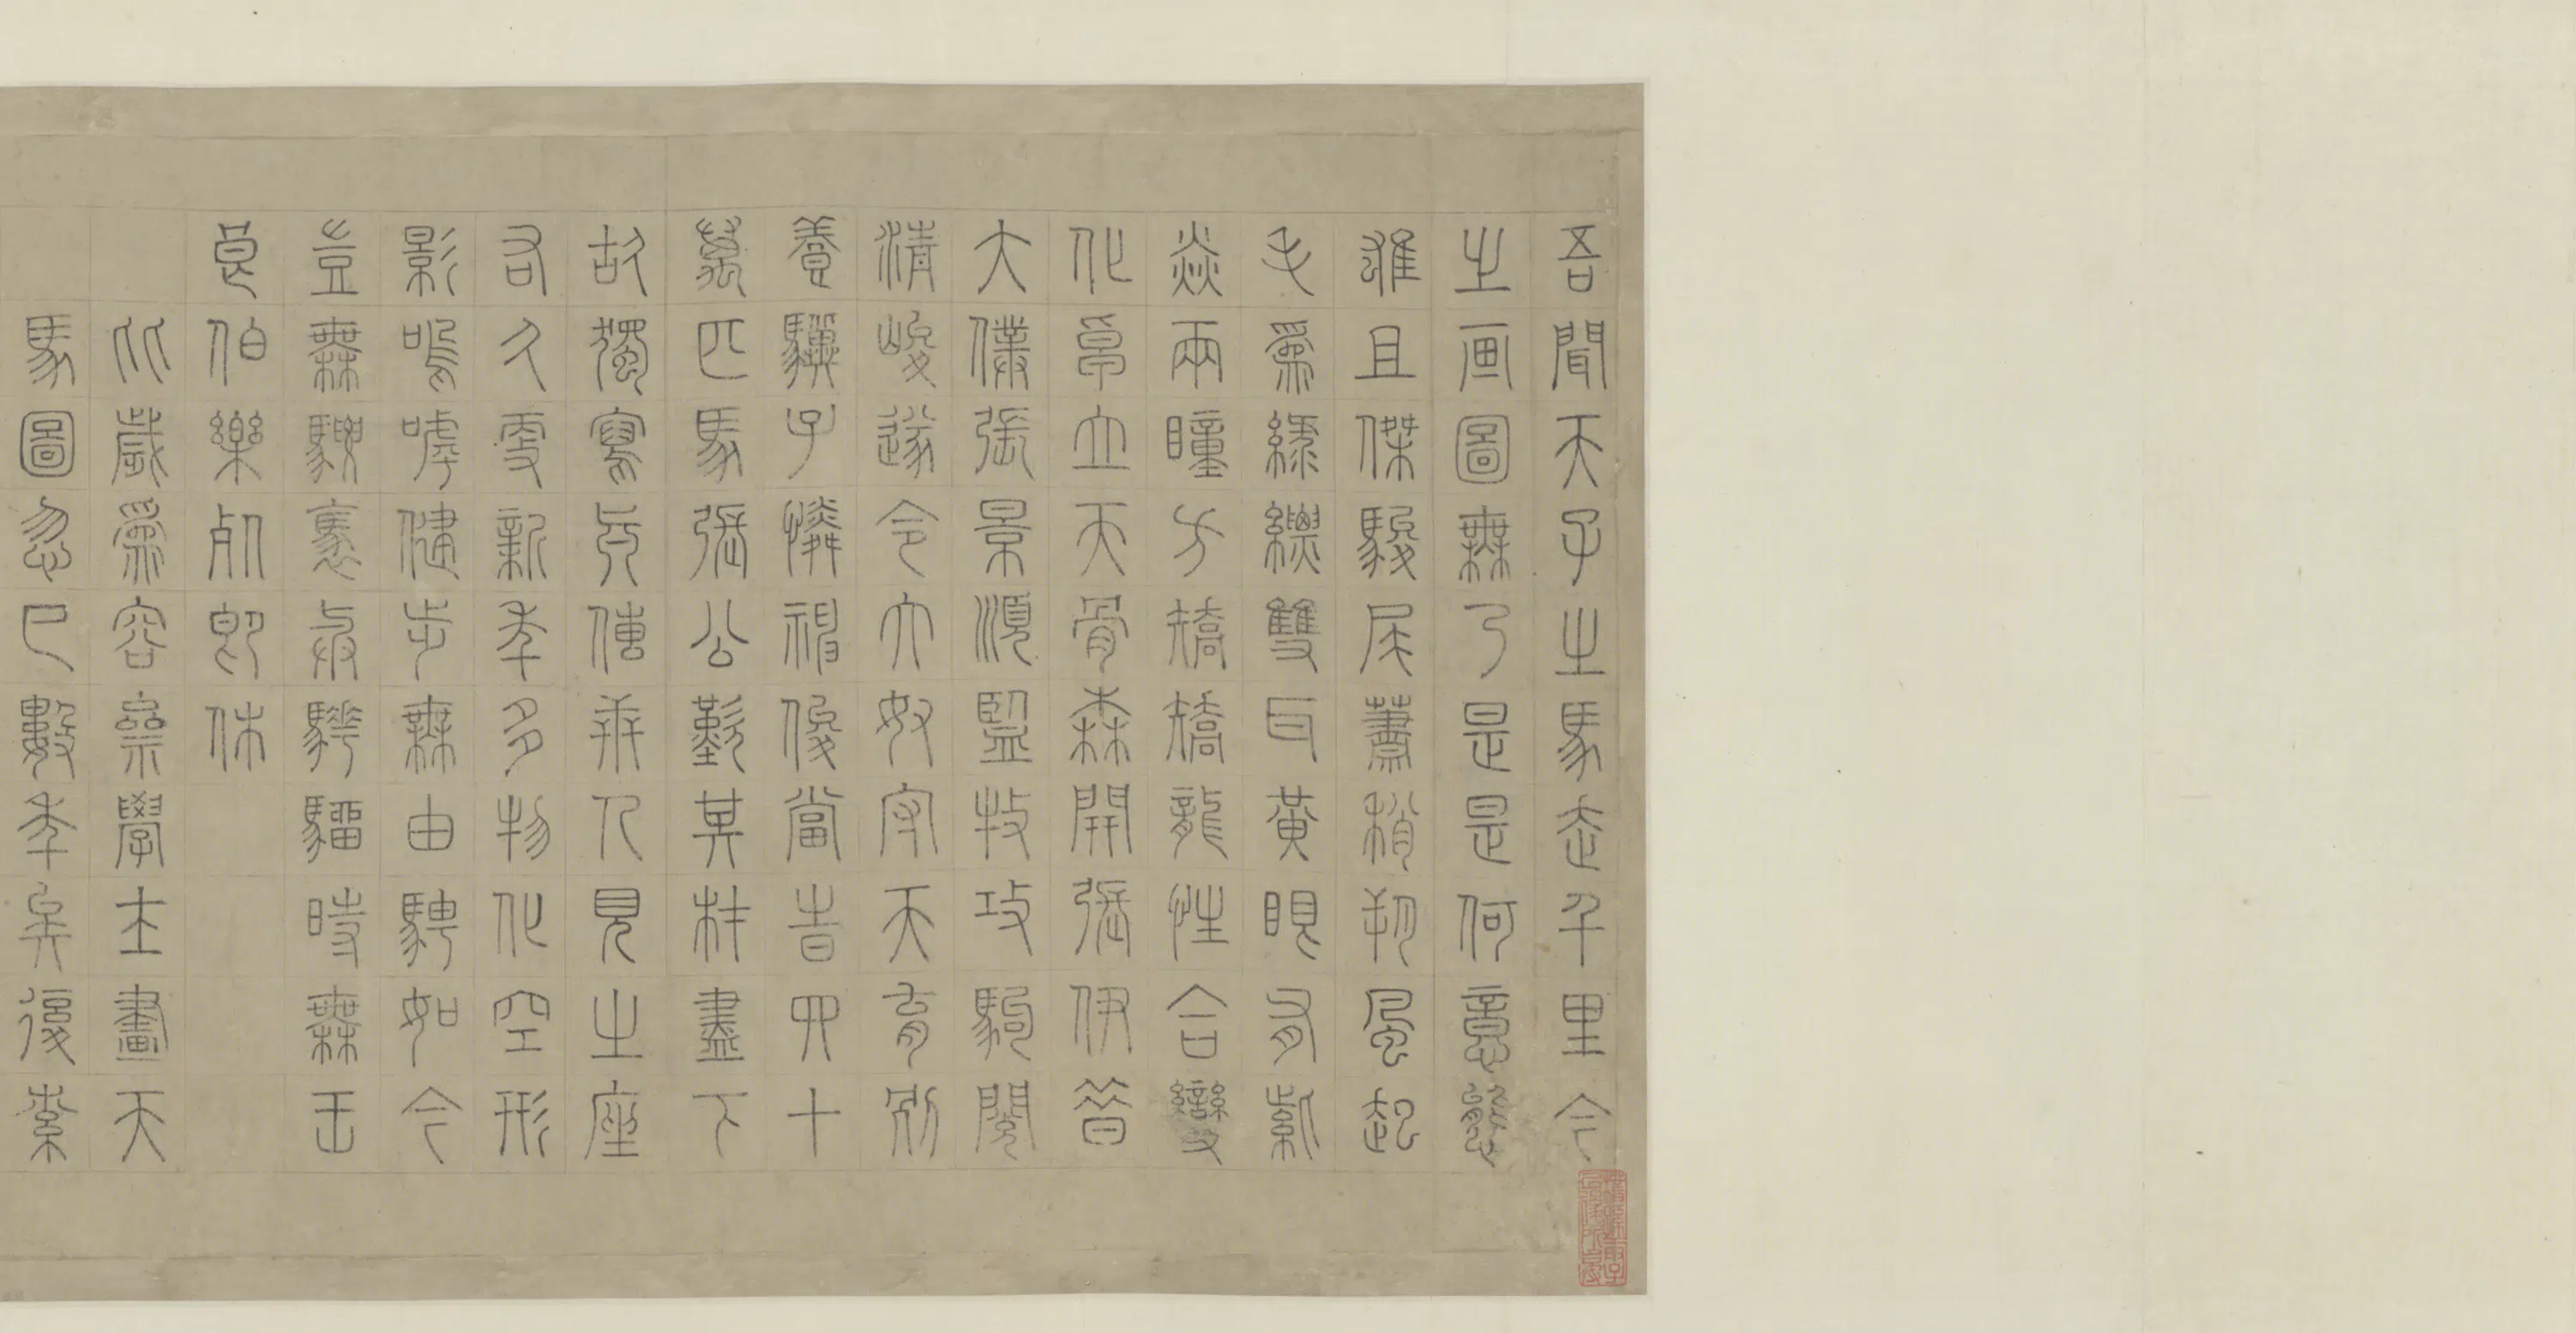 吾聞天子之馬走千里今
之画圖無乃是是何意態
雄且傑駿尾蕭梢朔風起
毛爲綠縹雙耳黃眼有紫
焱兩瞳方矯矯龍性合變
化卓立天骨森開張伊昔
大僕張景順監牧攻駒閱
清峻遂令大奴守天育別
養驥子憐神俊當昔四十
萬匹馬張公歎其材盡下
故獨寫真傳世人見之座
右久更新年多物化空形
影嗚嘑健步無由騁如今
豈無騕褭與驊騮時無王
良伯樂死即休
比歲爲容齋學士畫天
馬圖忽已數年矣復索